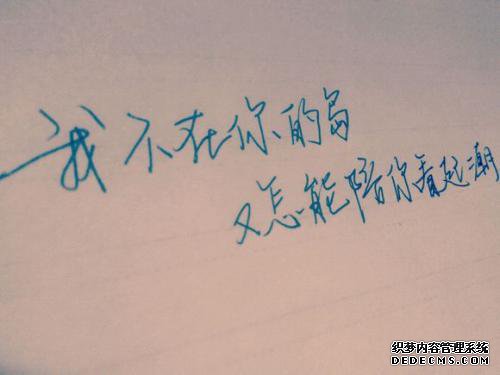 我不在你的岛
又怎能陪你看起潮
织梦内容管理系统
DEDECMS.COM